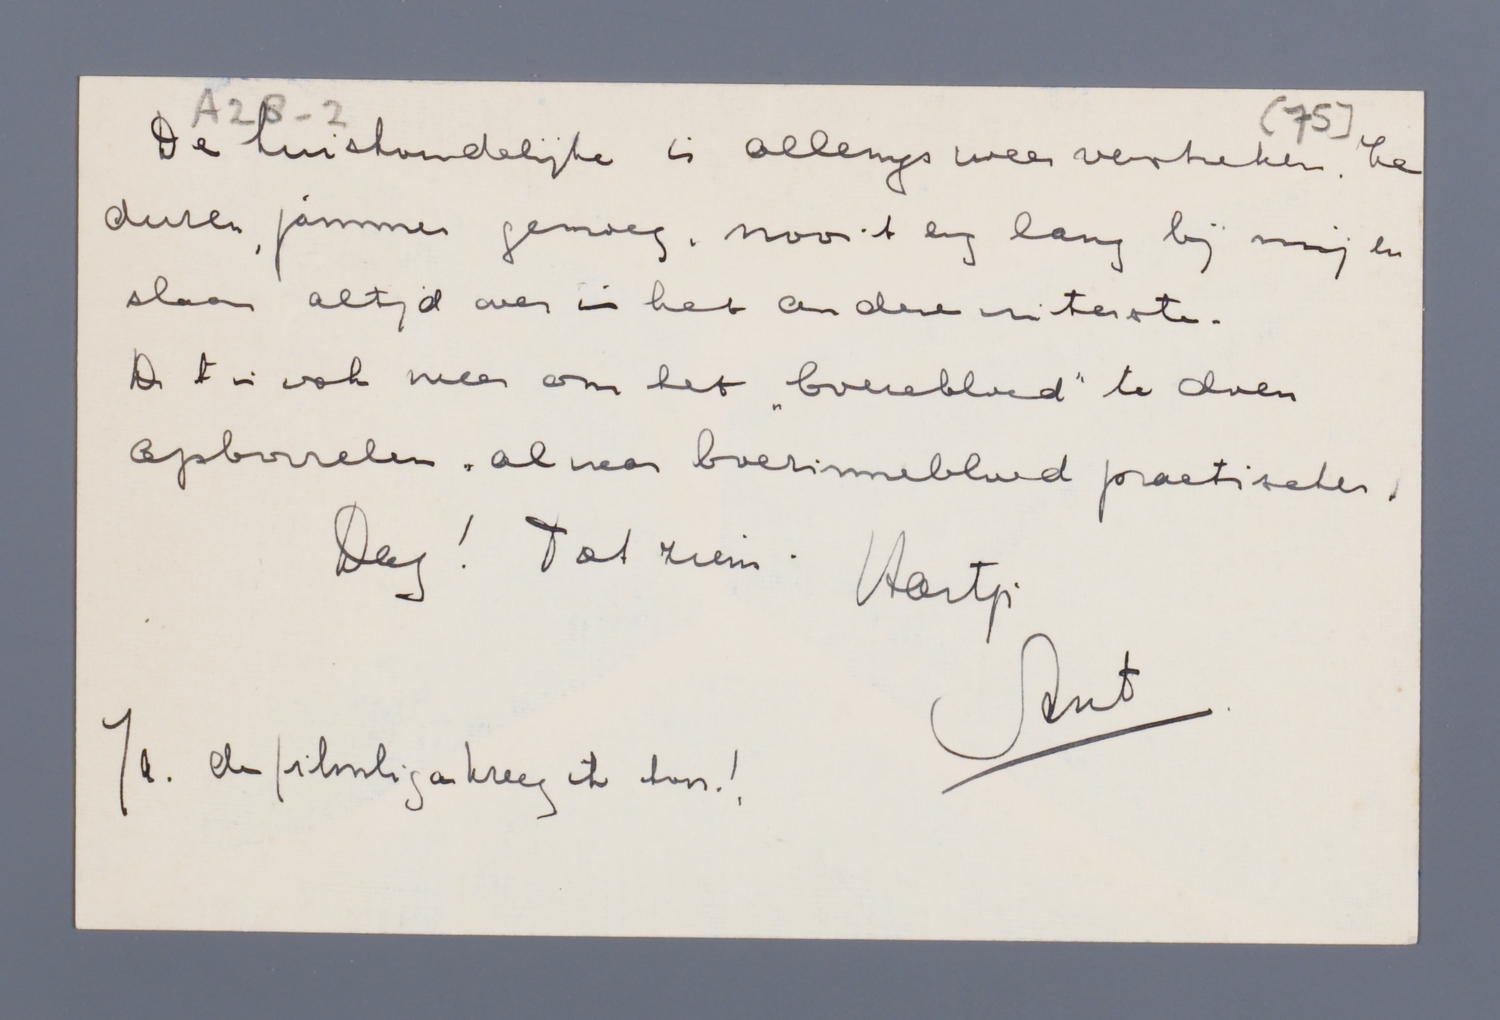 A28-2 (75]
De huishoudelijke is allengs weer vertrokken. Ze
duren, jammer genoeg, nooit erg lang bij mij en
slaan altijd over in het andere uiterste.
Dit is ook weer om het „boerebloed" te doen
opborrelen, al was boerinnebloed practischer.
Dag! Tot ziens. Hartji
Ant
Ja. de kreeg ik hoor.!